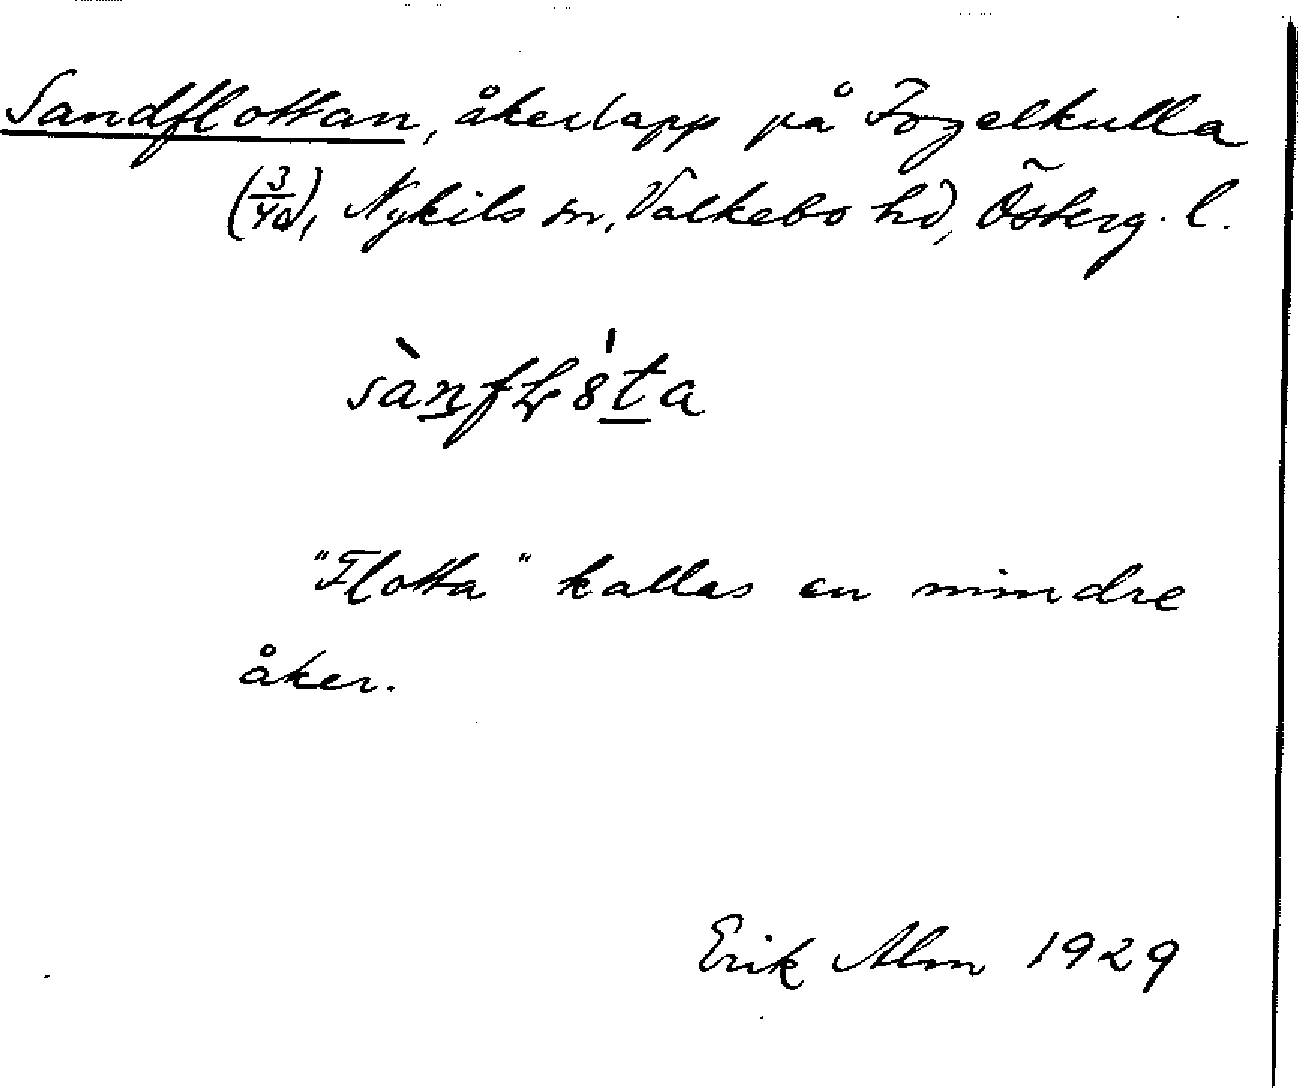 Sandflottan, åkerlapp på Fogelkulla
(3/4a), Nykils sn, Valkebo hd, Österg. l.
"Flotta" kallas en mindre
åker.
Erik Alm 1929